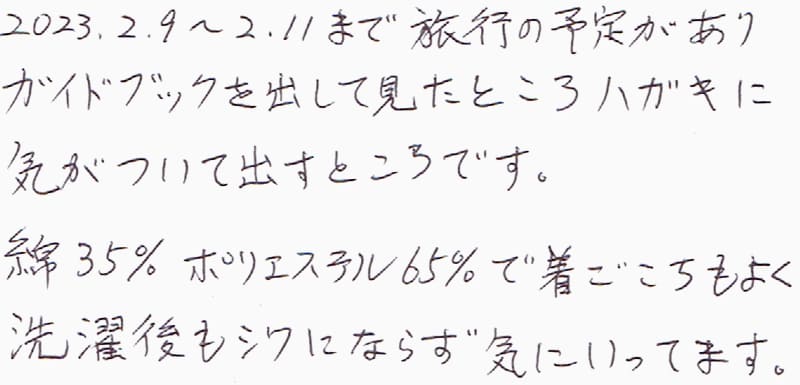 2023.2.9～2.11まで旅行の予定があり
ガイドブックを出して見たところハガキに
気がついて出すところです。
綿35% ポリエステル65%で着ごこちもよく
洗濯後もシワにならず気にいってます。